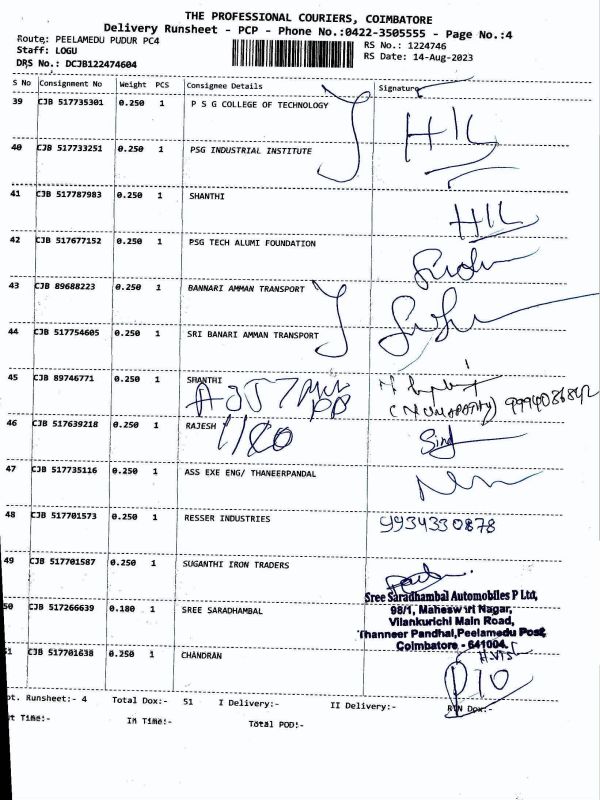 THE PROFESSIONAL COURIERS, COIMBATORE
Delivery Runsheet - PCP - Phone No.:0422-3505555 - Page No.:4
Route: PEELAMEDU PUDUR PC4
RS No.: 1224746
Staff: LOGU
RS Date: 14-Aug-2023
DRS No.: DCJB122474604
S No Consignment No Weight PCS Consignee Details Signature
39 CJB 517735301 0.250 1 P S G COLLEGE OF TECHNOLOGY
40 CJB 517733251 0.250 1 PSG INDUSTRIAL INSTITUTE
41 CJB 517787983 0.250 1 SHANTHI
42 CJB 517677152 0.250 1 PSG TECH ALUMI FOUNDATION
43 CJB 89688223 0.250 1 BANNARI AMMAN TRANSPORT
44 CJB 517754605 0.250 1 SRI BANARI AMMAN TRANSPORT
45 CJB 89746771 0.250 1 SHANTHI
9994086842
46 CJB 517639218 0.250 1 RAJESH
47 CJB 517735116 0.250 1 ASS EXE ENG/ THANEERPANDAL
48 CJB 517701573 0.250 1 RESSER INDUSTRIES 9934330878
49 CJB 517701587 0.250 1 SUGANTHI IRON TRADERS
Sree Saradhambal Automobiles P Ltd,
98/1, Maheswari Nagar,
50 CJB 517266639 0.180 1 SREE SARADHAMBAL
Vilankurichi Main Road,
Thanneer Pandhal,Peelamedu Post,
Coimbatore - 641004.
51 CJB 517701638 0.250 1 CHANDRAN
pt. Runsheet:- 4 Total Dox:- 51 I Delivery:- II Delivery:- RTN Dox:-
t Time:- In Time:- Total POD:-